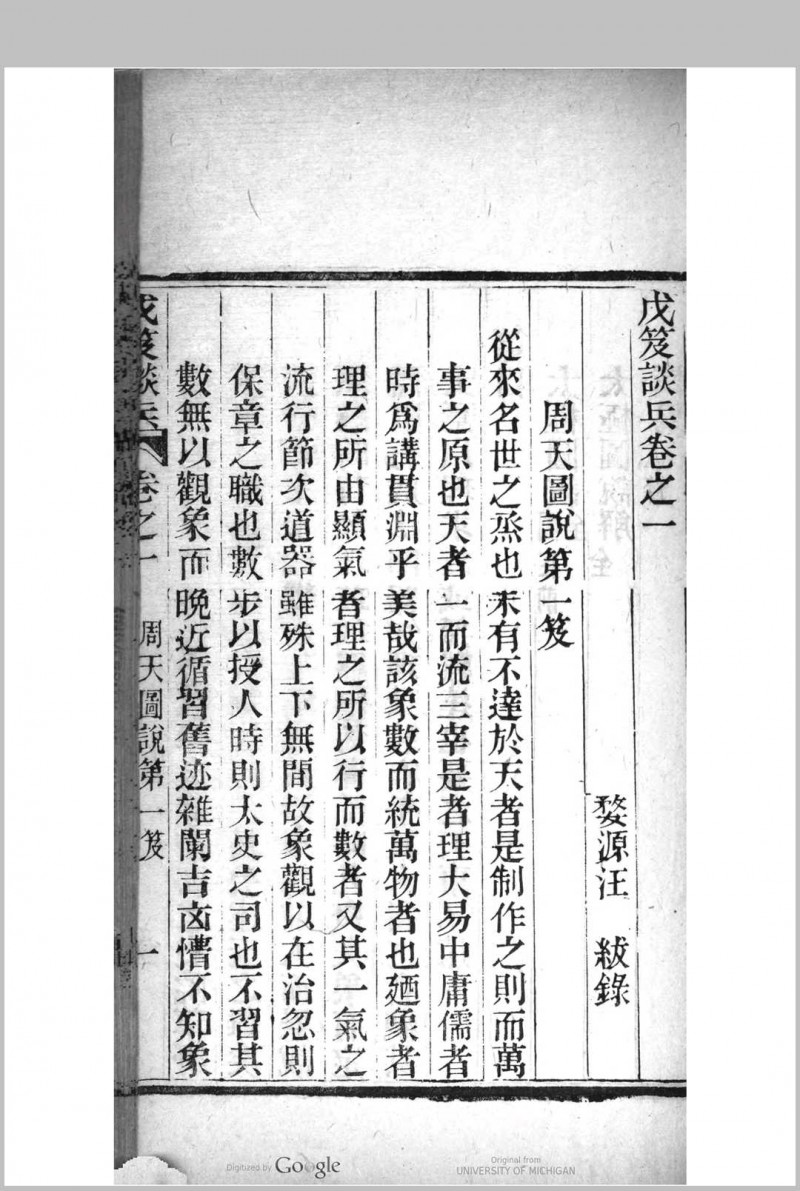 戊笈談兵卷之一
婺源汪 紱錄
周天圖說第一笈
從來名世之烝也未有不達於天者是制作之則而萬
事之原也天者一而流三宰是者理大易中庸儒者
時爲講貫淵乎美哉該象數而統萬物者也廼象者
理之所由顯氣者理之所以行而數者又其一氣之
流行節次道器雖殊上下無間故象觀以在治忽則
保章之職也數步以授人時則太史之司也不習其
數無以觀象而晚近循習舊迹雜闌吉凶懵不知象
戊笈談兵 卷之一 周天圖說第一笈 一
Digitized by Google
Original from
UNIVERSITY OF MICHIGAN